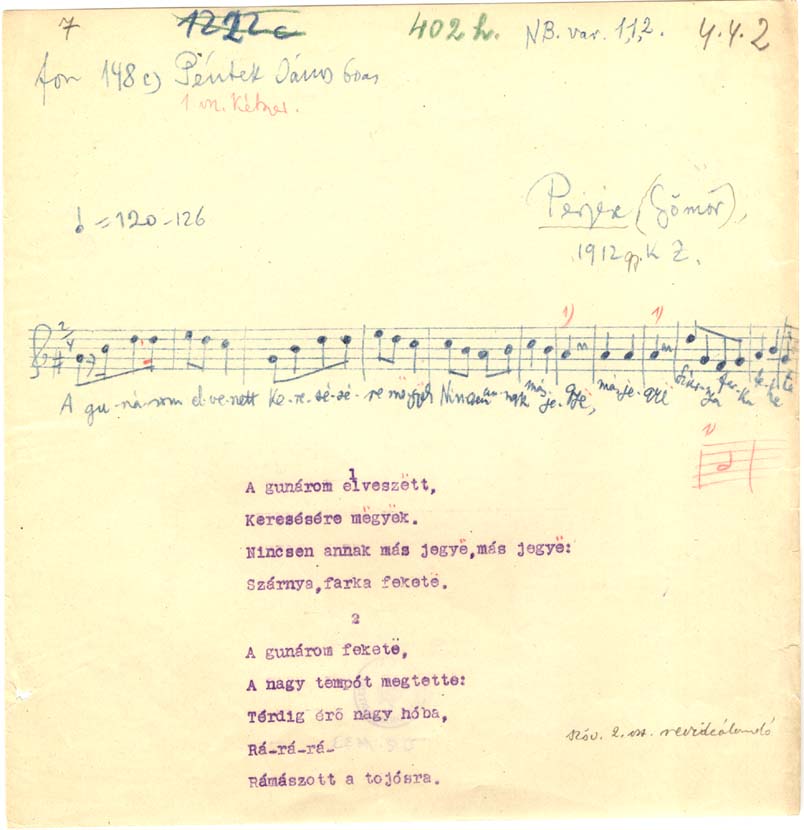 7 1222c 402 h. NB. var. 1,1,2. 4.4.2
fon 148 c) Péntek János 60as
1 vsz. Kétszer.
= 120-126
Perjéx (Gömör),
1912 K Z.
2/4
1) 1)
A gu-ná-rom el-ve-szett Ke-re-sé-sé-re mögyök Nincsen an-nak más je-gyë, más je-gyë Szár-nya far-ka fe-ke-te
1)
1
A gunárom elveszëtt,
Keresésére mëgyëk.
Nincsen annak más jegyë,más jegyë:
Szárnya,farka feketë.
2
A gunárom feketë,
A nagy tempót megtette:
Térdig érő nagy hóba,
Rá-rá-rá-
Rámászott a tojósra.
szöv. 2. vsz. revideálandó